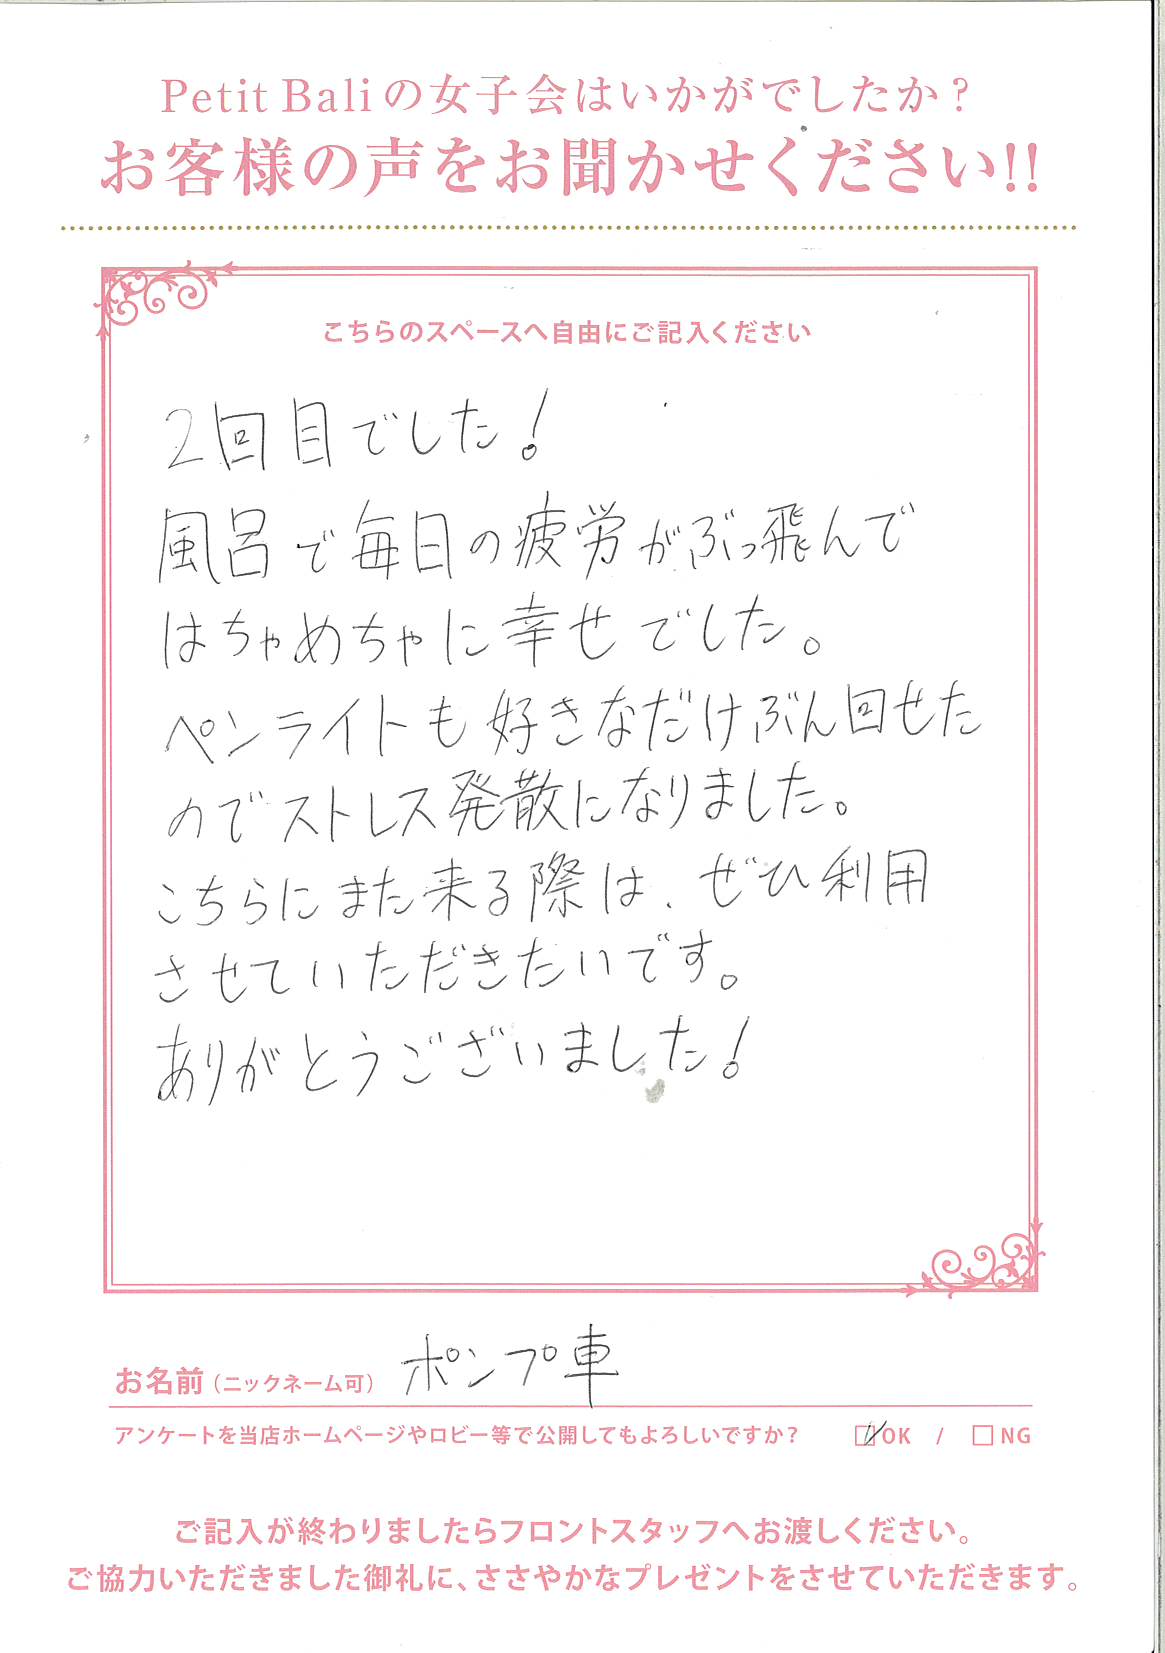 Petit Baliの女子会はいかがでしたか?
お客様の声をお聞かせください!!
こちらのスペースへ自由にご記入ください
2回目でした!
風呂で毎日の疲労がぶっ飛んで
はちゃめちゃに幸せでした。
ペンライトも好きなだけぶん回せた
のでストレス発散になりました。
こちらにまた来る際は、ぜひ利用
させていただきたいです。
ありがとうございました!
お名前(ニックネーム可) ポンプ車
アンケートを当店ホームページやロビー等で公開してもよろしいですか? ☑OK / □NG
ご記入が終わりましたらフロントスタッフへお渡しください。
ご協力いただきました御礼に、ささやかなプレゼントをさせていただきます。